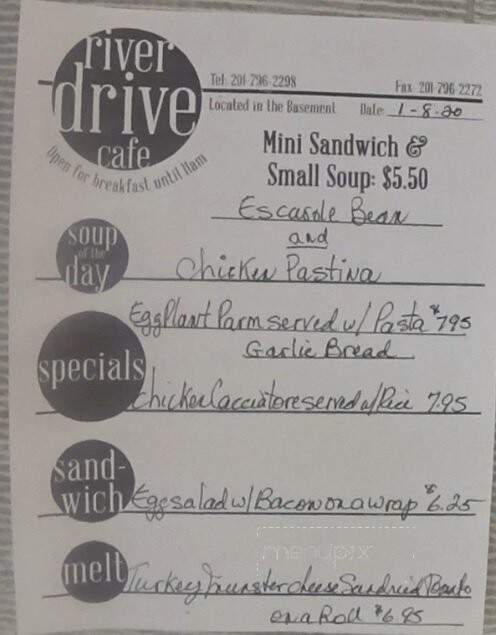 river
drive
cafe
Open for breakfast until 11am
Tel: 201-796-2298
Fax: 201-796-2272
Located in the Basement
Date: 1-8-20
Mini Sandwich &
Small Soup: $5.50
soup
of the
day
Escarole Bean
and
Chicken Pastina
specials
EggPlant Parm served w/ Pasta $7.95
Garlic Bread
Chicken Cacciatore served w/ Rice 7.95
sand-
wich
Egg salad w/ Bacon on a wrap $6.25
melt
Turkey, munster cheese, Sundried
on a Roll $6.95
menupix